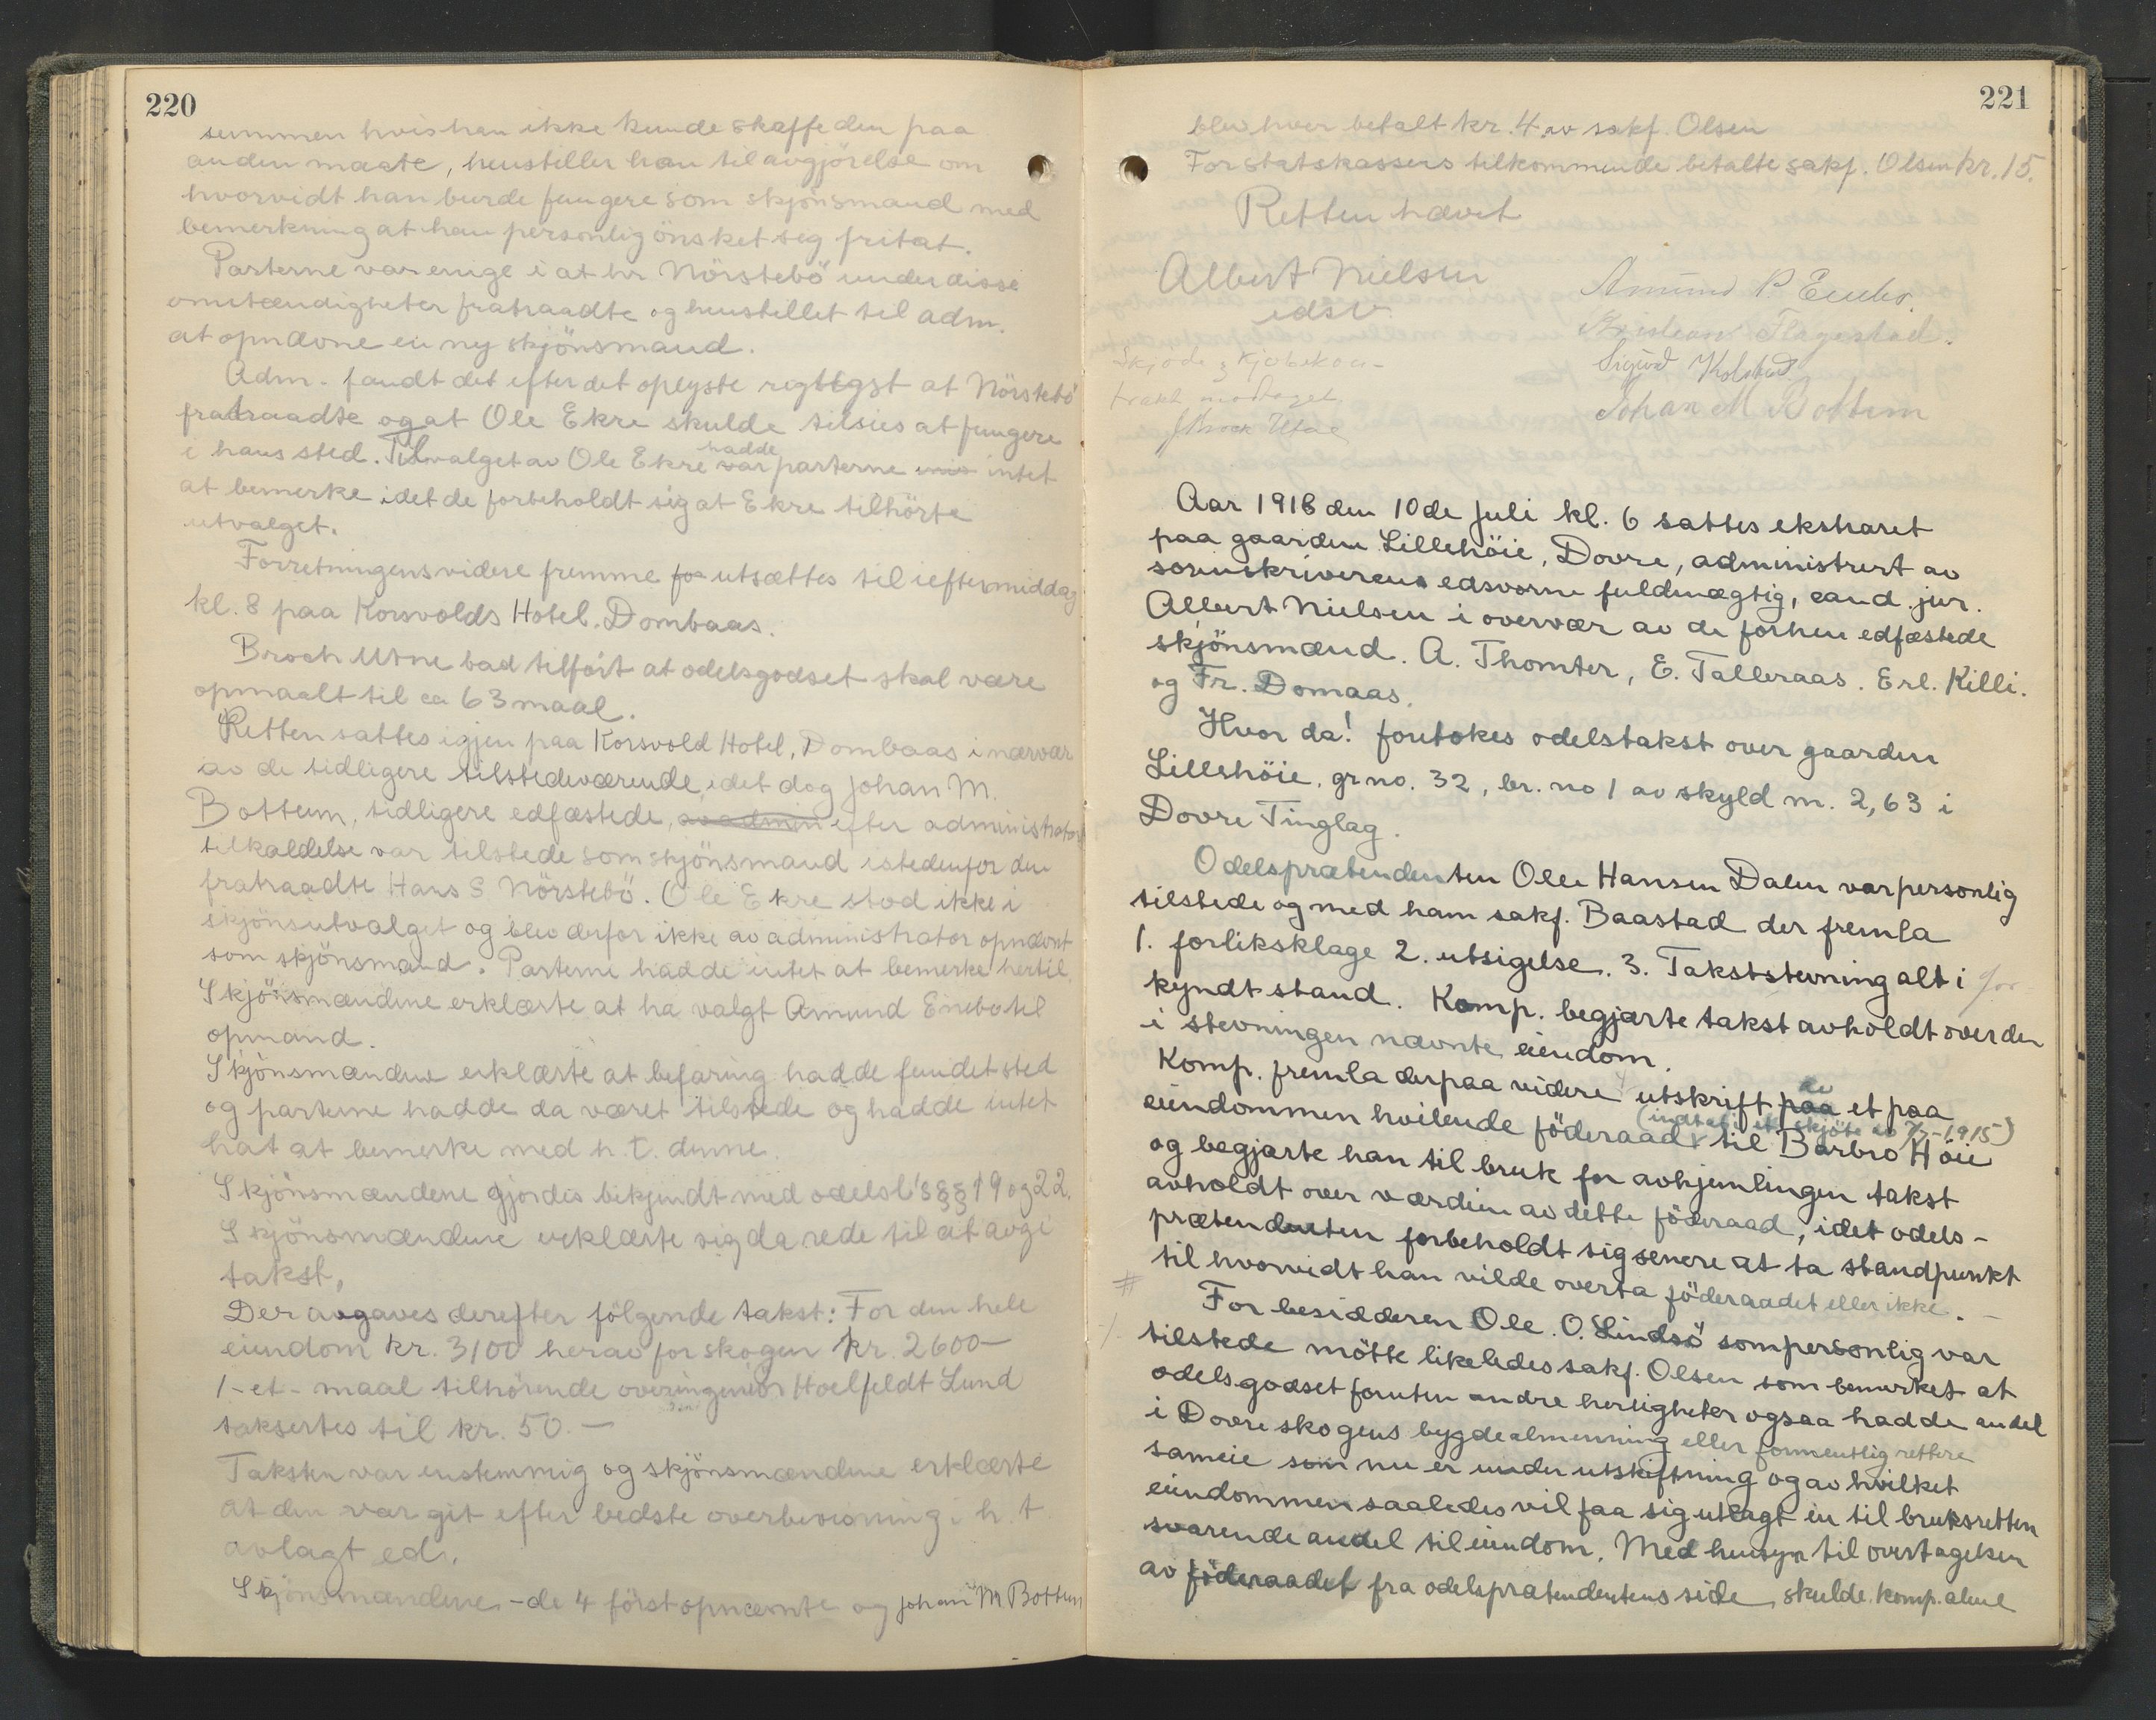 220
summen hvis han ikke kunde skaffe den paa
anden maate, henstiller han til avgjörelse om
hvorvidt han burde fungere som skjönsmand med
bemerkning at han personlig önsket seg fritat.
Parterne var enige i at hr Nörstebö under disse
omstændigheter fratraadte og henstillet til adm.
at opnævne en ny skjönsmand.
Adm. fandt det efter det oplyste rigtigst at Nörstebö
fratraadte og at Ole Ekre skulde tilsies at fungere
i hans sted. Til valget av Ole Ekre var hadde parterne intet
at bemerke idet de forbeholdt sig at Ekre tilhörte
utvalget.
Forretningens videre fremme for utsættes til i eftermiddag
kl. 8 paa Korsvolds Hotel. Dombaas.
Broch Utne bad tilfört at odelsgodset skal være
opmaalt til ca 63 maal.
Retten sattes igjen paa Korsvold Hotel, Dombaas i nærvær
av de tidligere tilstedeværende, idet dog Johan M.
Bottum, tidligere edfæstede, av admin efter administrators
tilkaldelse var tilstede som skjönsmand istedenfor den
fratraadte Hans S Nörstebö. Ole Ekre stod ikke i
skjönsutvalget og blev derfor ikke av administrator opnævnt
som skjönsmand. Parterne hadde intet at bemerke hertil.
Skjönsmændene erklærte at ha valgt Amund Enebo til
opmand.
Skjönsmændene erklærte at befaring hadde fundet sted
og parterne hadde da været tilstede og hadde intet
hat at bemerke med h. t. denne.
Skjönsmændene gjordes bekjendt med odelsl's §§ 19 og 22.
Skjönsmændene erklærte sig da rede til at avgi
takst,
Der avgaves derefter fölgende takst: For den hele
eiendom kr. 3100 herav for skogen kr. 2600—
1-et- maal tilhörende overingeniör Hoelfeldt Lund
taksertes til kr. 50.—
Taksten var enstemmig og skjönsmændene erklærte
at den var git efter bedste overbevisning i h. t
avlagt ed.
Skjönsmændene - de 4 först opnævnte og Johan M Bottum
221
blev hver betalt kr. 4 av sakf. Olsen
For statskassens tilkommende betalte sakf. Olsen kr. 15.
Retten hævet
Albert Nielsen
edsv.
Amund P. Enebo.
Kristian Flagestad.
Sigurd Kolstad
Johan M Bottum
Skjöde & kjöbekon-
trakt mottaget
Broch Utne
Aar 1918 den 10de juli kl. 6 sattes ekstraret
paa gaarden Lillehöie, Dovre, administrert av
sorenskriverens edsvorne fuldmægtig, cand. jur.
Albert Nielsen i overvær av de forhen edfæstede
skjönsmænd. A. Thomter, E. Talleraas. Erl. Killi.
og Fr. Domaas.
Hvor da! foretokes odelstakst over gaarden
Lillehöie, gr no. 32, br. no 1 av skyld m. 2,63 i
Dovre Tinglag.
Odelsprætendenten Ole Hansen Dalen var personlig
tilstede og med ham sakf. Baastad der fremla
1. forliksklage 2. utsigelse. 3. Takststevning alt i for
kyndt stand. Komp. begjærte takst avholdt over den
i stevningen nævnte eiendom.
Komp. fremla derpaa videre utskrift paa av et paa
eiendommen hvilende föderaad (indtat i et skjöte av 7/5-1915) til Barbro Höie
og begjærte han til bruk for avhjemlingen takst
avholdt over værdien av dette föderaad, idet odels-
prætendenten forbeholdt sig senere at ta standpunkt
til hvorvidt han vilde overta föderaadet eller ikke.
For besidderen Ole O. Lindsö som personlig var
tilstede mötte likeledes sakf. Olsen som bemerket at
odelsgodset foruten andre herligheter ogsaa hadde andel
i Dovreskogens bygdealmenning eller formentlig rettere
sameie som nu er under utskiftning og av hvilket
eiendommen saaledes vil faa sig utlagt en til bruksretten
svarende andel til eiendom. Med hensyn til overtagelsen
av föderaadet fra odelsprætendentens side, skulde komp. alene